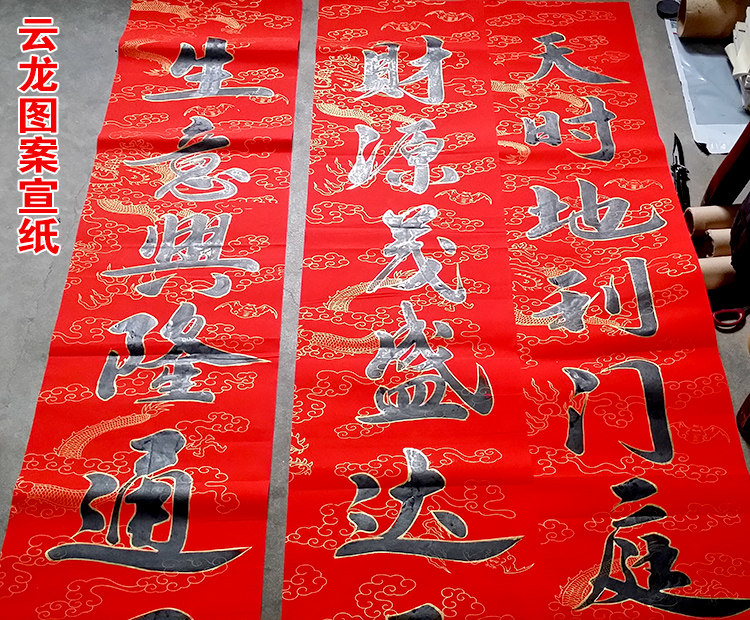 云龙图案宣纸
生意興隆通
財源茂盛达
天时地利门庭